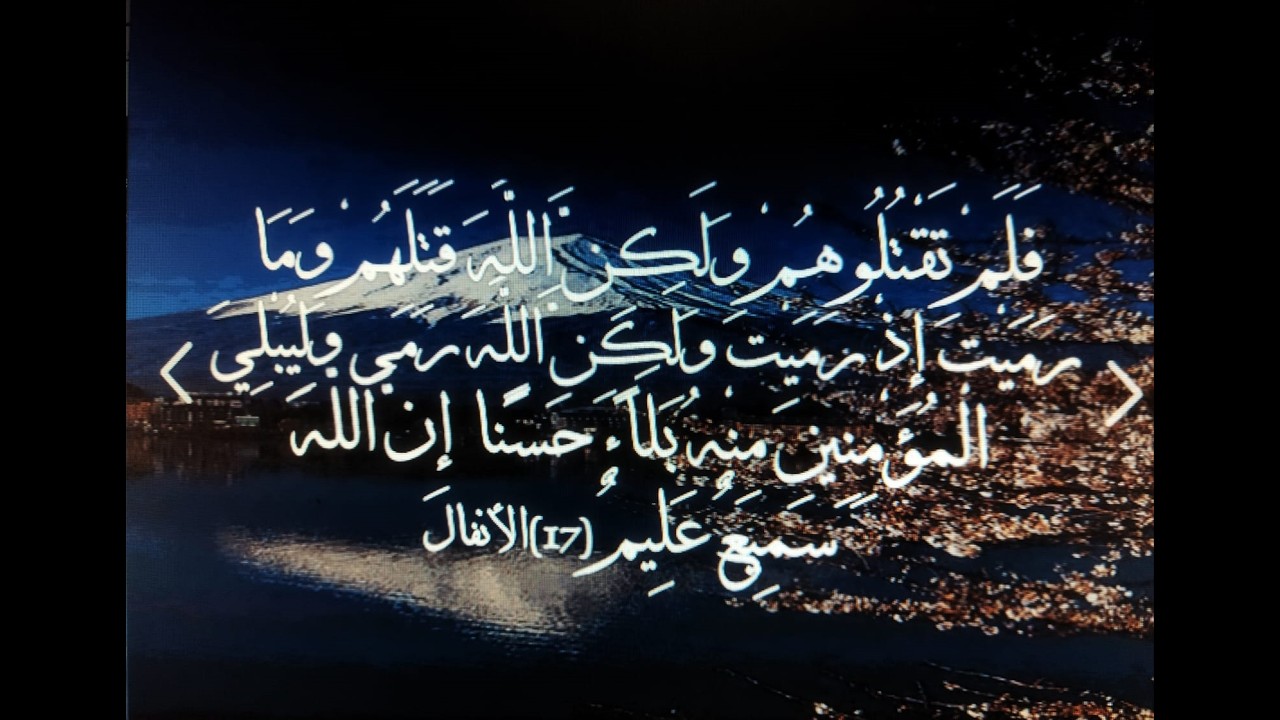 فَلَمْ تَقْتُلُوهُمْ وَلَكِنَّ اللَّهَ قَتَلَهُمْ وَمَا
رَمَيْتَ إِذْ رَمَيْتَ وَلَكِنَّ اللَّهَ رَمَى وَلِيُبْلِيَ
الْمُؤْمِنِينَ مِنْهُ بَلَاءً حَسَنًا إِنَّ اللَّهَ
سَمِيعٌ عَلِيمٌ (17)الأنفالَ